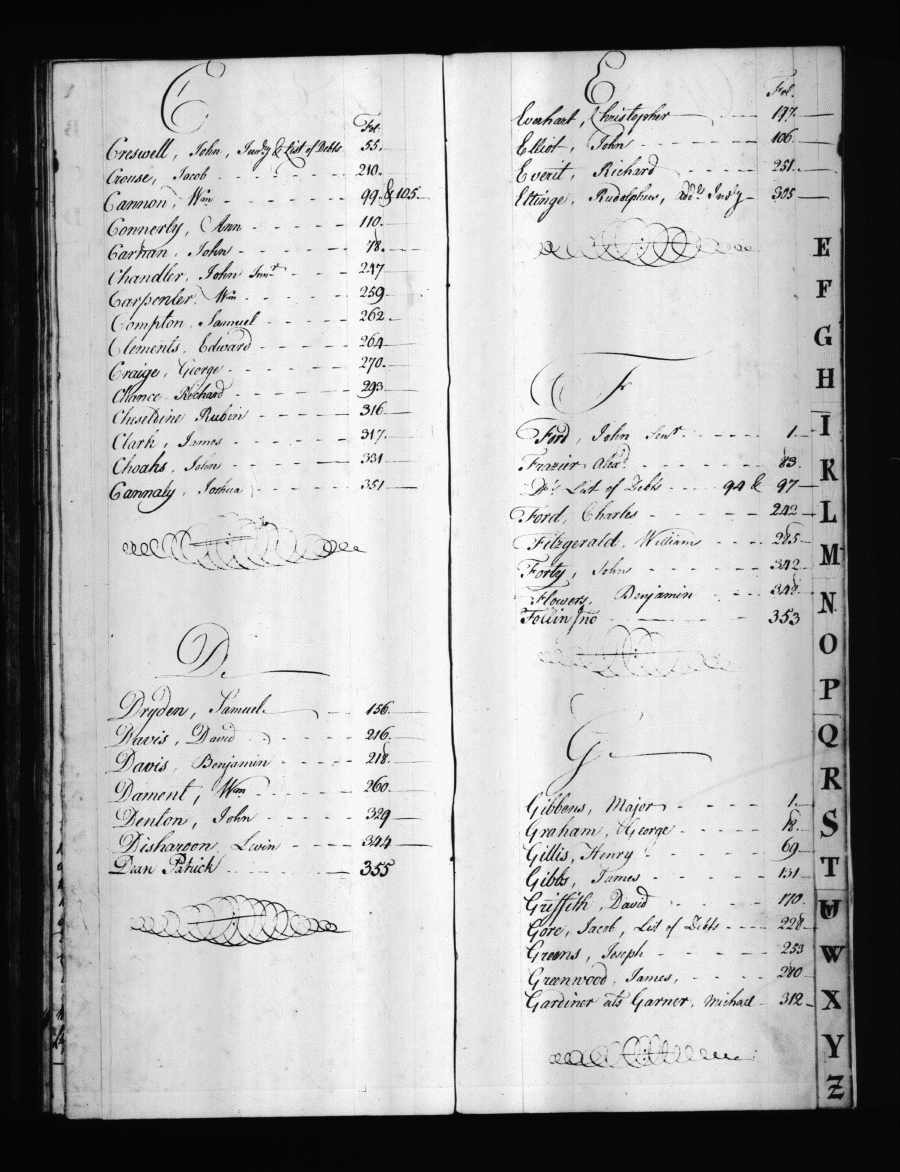 C
Fol.
Creswell, John, Insdy & List of Debts 55.
Crouse, Jacob 210.
Cannon, Wm 99. & 105.
Connerly, Ann 110.
Cartran, John 78.
Chandler, John Junr 247
Carpenter, Wm 259
Compton, Samuel 262
Clements, Edward 264
Craige, George 270.
Chance, Richard 293
Cheseldine Rubin 316
Clark, James 317.
Choahs, John 331
Cannaly, Joshua 351
D.
Dryden, Samuel 156.
Davis, David 216.
Davis, Benjamin 218.
Dament, Wm 260.
Denton, John 329
Disharoon, Levin 344
Dean Patrick 355
E
Fol.
Everhart, Christopher 197.
Elliot, John 106
Everit, Richard 251
Eltinge, Rudolphus, 305
F
Ford, John Senr 1.
Frazier Alexd. 83.
Do. List of Debts 94 & 97
Ford, Charles 242
Fitzgerald, William 285
Forty, John 342
Flowers, Benjamin 348
Follin Jno 353
G
Gibbens, Major 1.
Graham, George 18.
Gillis, Henry 69
Gibbs, James 131
Griffith, David 170.
Gore, Jacob, List of Debts 228
Greens, Joseph 253
Greenwood, James, 280
Gardiner als Garner, Michael 312
E
F
G
H
I
K
L
M
N
O
P
Q
R
S
T
W
X
Y
Z